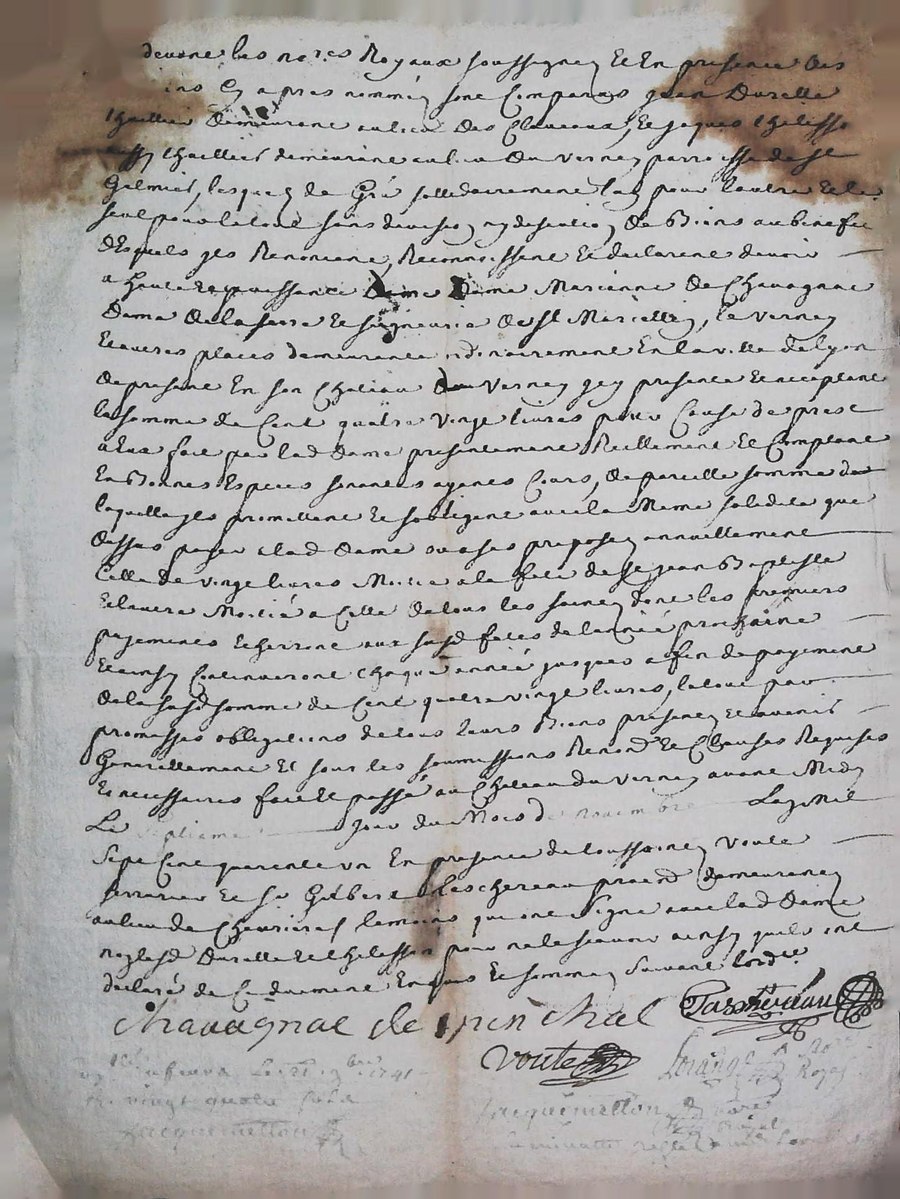 devant les no.res Royaux soussignez Et En presence des
ins Cy apres nommez sont Comparus jean Durelle
thuillier demeurant au lieu des Claveaux, Et jaques thelisso
aussy thuillier demeurant au lieu du verney parroisse de St
Galmier, lesquels de Gré sollidairement l'un pour l'autre Et le
seul pour le tout sans division ny discution de Biens au benefice
desquels ils Renoncent, Reconnoissent Et declarent devoir
a haute Et puissante dame Dame Marianne de Chavagnac
dame de la serre Et seigneurie de St Marcellin, le verney
Et autres places demeurante ordinairement En la ville de lyon
de present En son Chateau du verney icy presente Et acceptante
la somme de Cent quatre vingt livres pour Cause de prest
a Eux fait par lad dame presentement Reellement Et Comptant
En Bonnes Especes sonantes ayants Cours, de pareille somme de
laquelle ils promettent Et sobligent avec la Meme solidité que
dessus payer a lad dame ou a ses preposez annuellement
Celle de vingt livres Moitié a la fete de St jean Baptiste
Et l'autre Moitié a Celle de tous les saints dont les premiers
payements Echerront aux susd fetes de l'année prochaine
Et ainsy Continueront chaque année jusques a fin de payement
de la susd somme de Cent quatre vingt livres, le tout par
promesses obligations de tous leurs Biens presents Et avenir
Generallement Et sous les soumissions Renond Et Clauses Requises
Et necessaires fait Et passé au Chateau du verney avant Midy
Le septieme jour du Mois de novembre L'an Mil
sept Cent quarente un En presence de toussaint voute
serrurier Et sr Gilbert Tascherau praticd demeurants
au lieu de Chevrieres temoins qui ont signé avec lad dame
non lesd Durelle Et thelisson pour ne le scavoir ainsy quils ont
declaré de Ce duement Enquis Et sommez suivant l'ord.ce
Chavagnac de Epinchal Tascherau
voute Loränge no.re Royal
vingt quatre sols
Jacquemetton
Jacquemetton no.re Royal